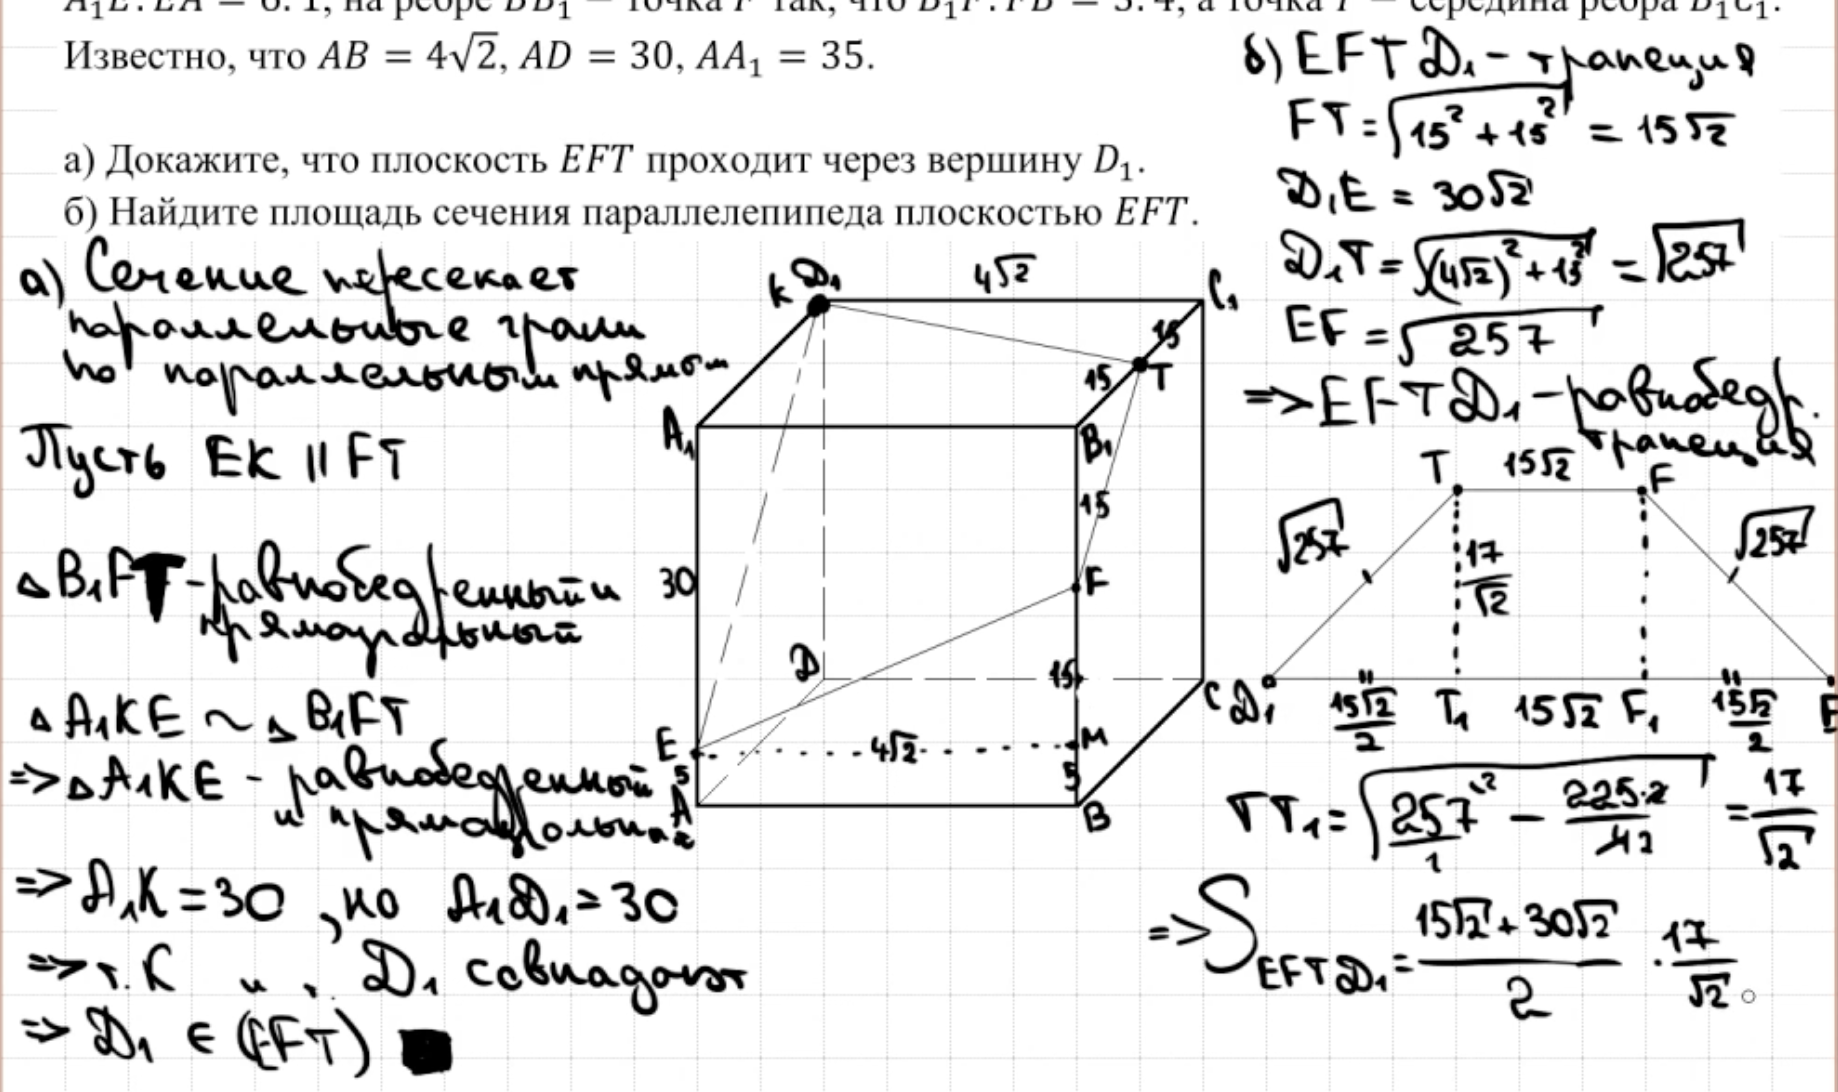 A₁E : EA = 6 : 1, на ребре BB₁ — точка F так, что B₁F : FB = 3 : 4, а точка T — середина ребра B₁C₁.
Известно, что AB = 4√2, AD = 30, AA₁ = 35.
а) Докажите, что плоскость EFT проходит через вершину D₁.
б) Найдите площадь сечения параллелепипеда плоскостью EFT.
а) Сечение пересекает
параллельные грани
по параллельным прямым
Пусть EK || FT
△B₁FT - равнобедренный и
прямоугольный
△A₁KE ~ △B₁FT
=> △A₁KE - равнобедренный
и прямоугольный
=> A₁K = 30, но A₁D₁ = 30
=> т. K и т. D₁ совпадают
=> D₁ ∈ (EFT) ■
K D₁ 4√2 C₁
15
15 T
A₁ B₁
15
30 F
D 15 C
E 4√2 M
5 5
A B
б) EFTD₁ - трапеция
FT = √(15² + 15²) = 15√2
D₁E = 30√2
D₁T = √((4√2)² + 15²) = √257
EF = √257
=> EFTD₁ - равнобедр.
трапеция
T 15√2 F
√257 17/√2 √257
D₁ 15√2/2 T₁ 15√2 F₁ 15√2/2 E
TT₁ = √(257/1 - 225·2/4) = 17/√2
=> S EFTD₁ = (15√2 + 30√2)/2 · 17/√2